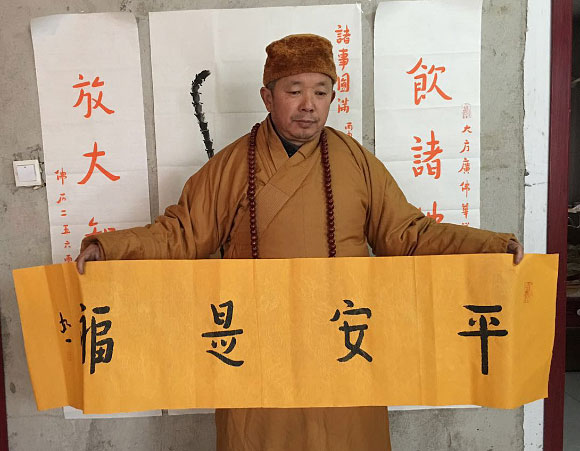 大方廣佛華
飲諸
諸事圓滿
放大
佛历二五六
平安是福